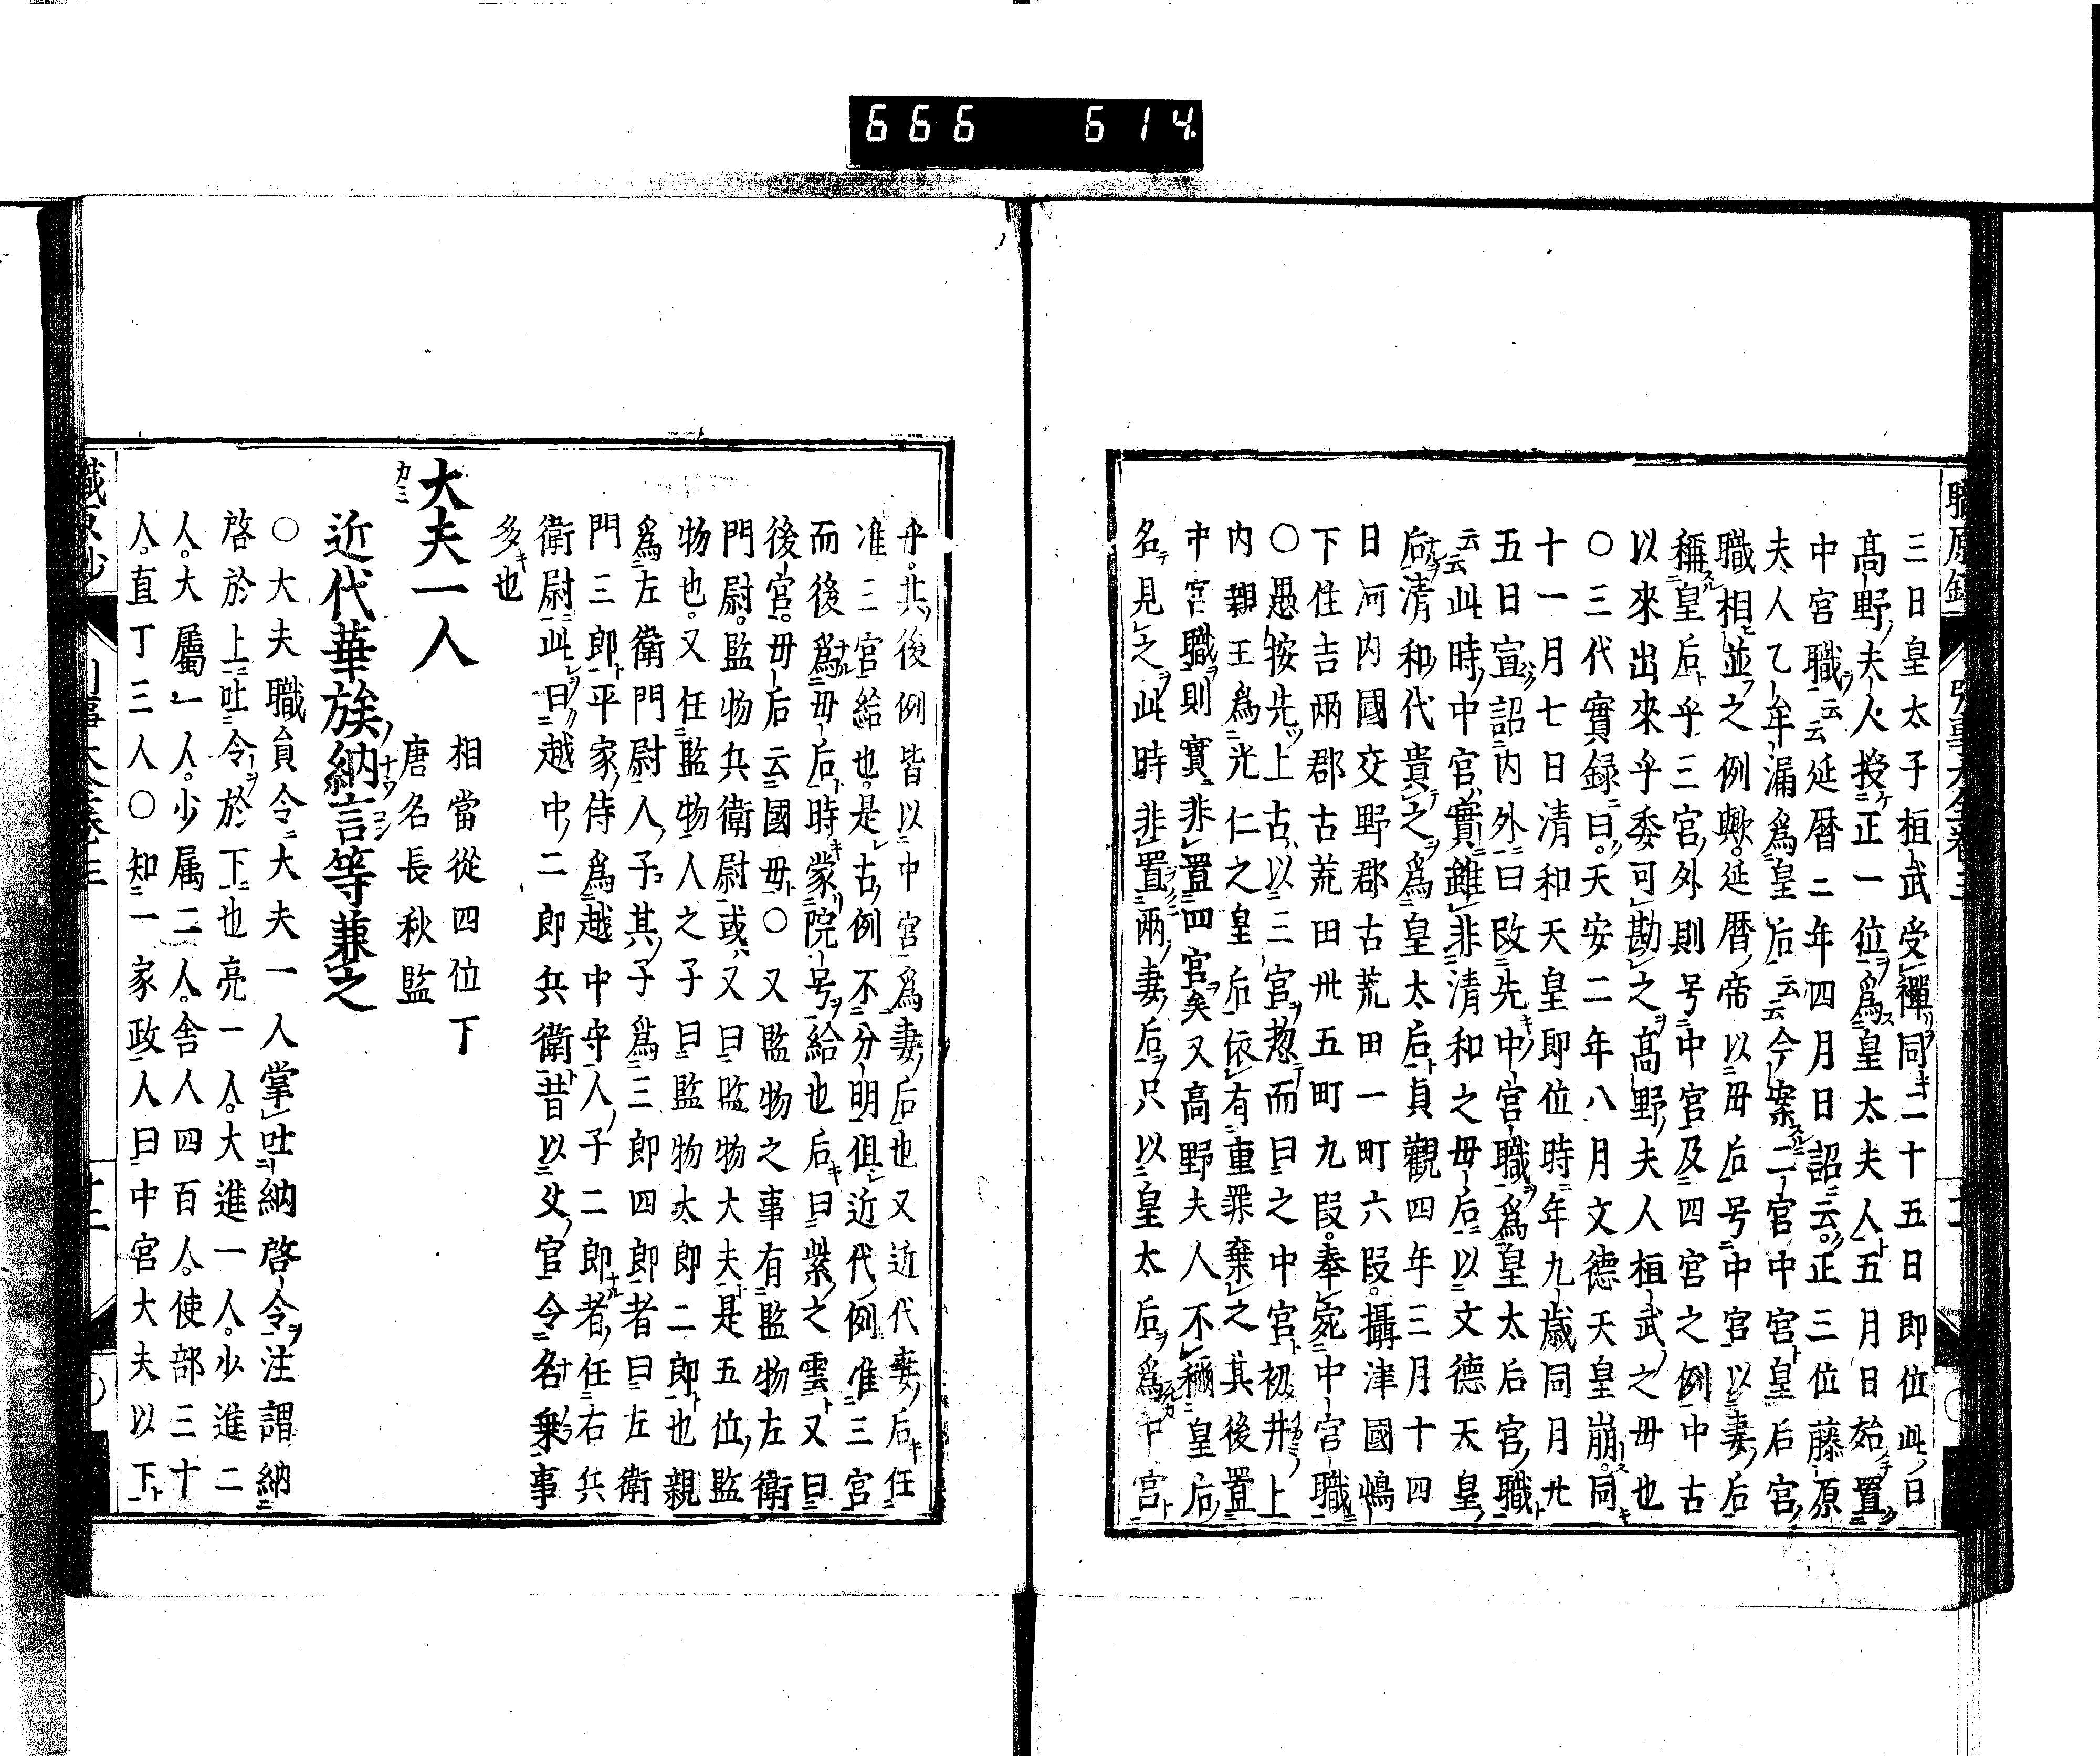 666 614.
職原鈔 引事大全卷三
三日皇太子桓武受禪同キ二十五日即位此日
髙野夫人授正一位爲皇太夫人五月日始置
中宮職云云延暦二年四月日詔云正三位藤原
夫人乙牟漏爲皇后云云今案二官中宮皇后宮
職相並之例歟延暦帝以毋后号中宮以妻后
稱皇后乎三宮外則号中宮及四宮之例中古
以來出來乎委可勘之髙野夫人桓武之毋也
○三代實録曰天安二年八月文德天皇崩同
十一月七日清和天皇即位時年九歳同月廿
五日宣詔内外曰改先中宮職爲皇太后宮職
云云此時中宮實雖非清和之毋后以文德天皇
后清和代貴之爲皇太后貞觀四年三月十四
日河内國交野郡古荒田一町六段攝津國嶋
下住吉兩郡古荒田卅五町九段奉宛中宮職
○愚按先上古以三宮惣而曰之中宮初井上
内親王爲光仁之皇后依有重罪棄之其後置
中宮職則實非置四宮矣又高野夫人不稱皇后
名見之此時非置兩妻后只以皇太后爲中宮
乎其後例皆以中宮爲妻后也又近代妻后任
准三宮給也是古例不分明但近代例准三宮
而後爲毋后時蒙院号給也后曰紫之雲又曰
後宮毋后云國毋○又監物之事有監物左衛
門尉監物兵衛尉或又曰監物大夫是五位監
物也又任監物人之子曰監物太郎二郎也親
爲左衛門尉人子其子爲三郎四郎者曰左衛
門三郎平家侍爲越中守人子二郎者任右兵
衛尉此曰越中二郎兵衛昔以父官令名乗事
多也
大夫一人 相當從四位下
唐名長秋監
近代華族納言等兼之
○大夫職員令大夫一人掌吐納啓令注謂納
啓於上吐令於下也亮一人大進一人少進二
人大屬一人少属二人舎人四百人使部三十
人直丁三人○知一家政人曰中宮大夫以下